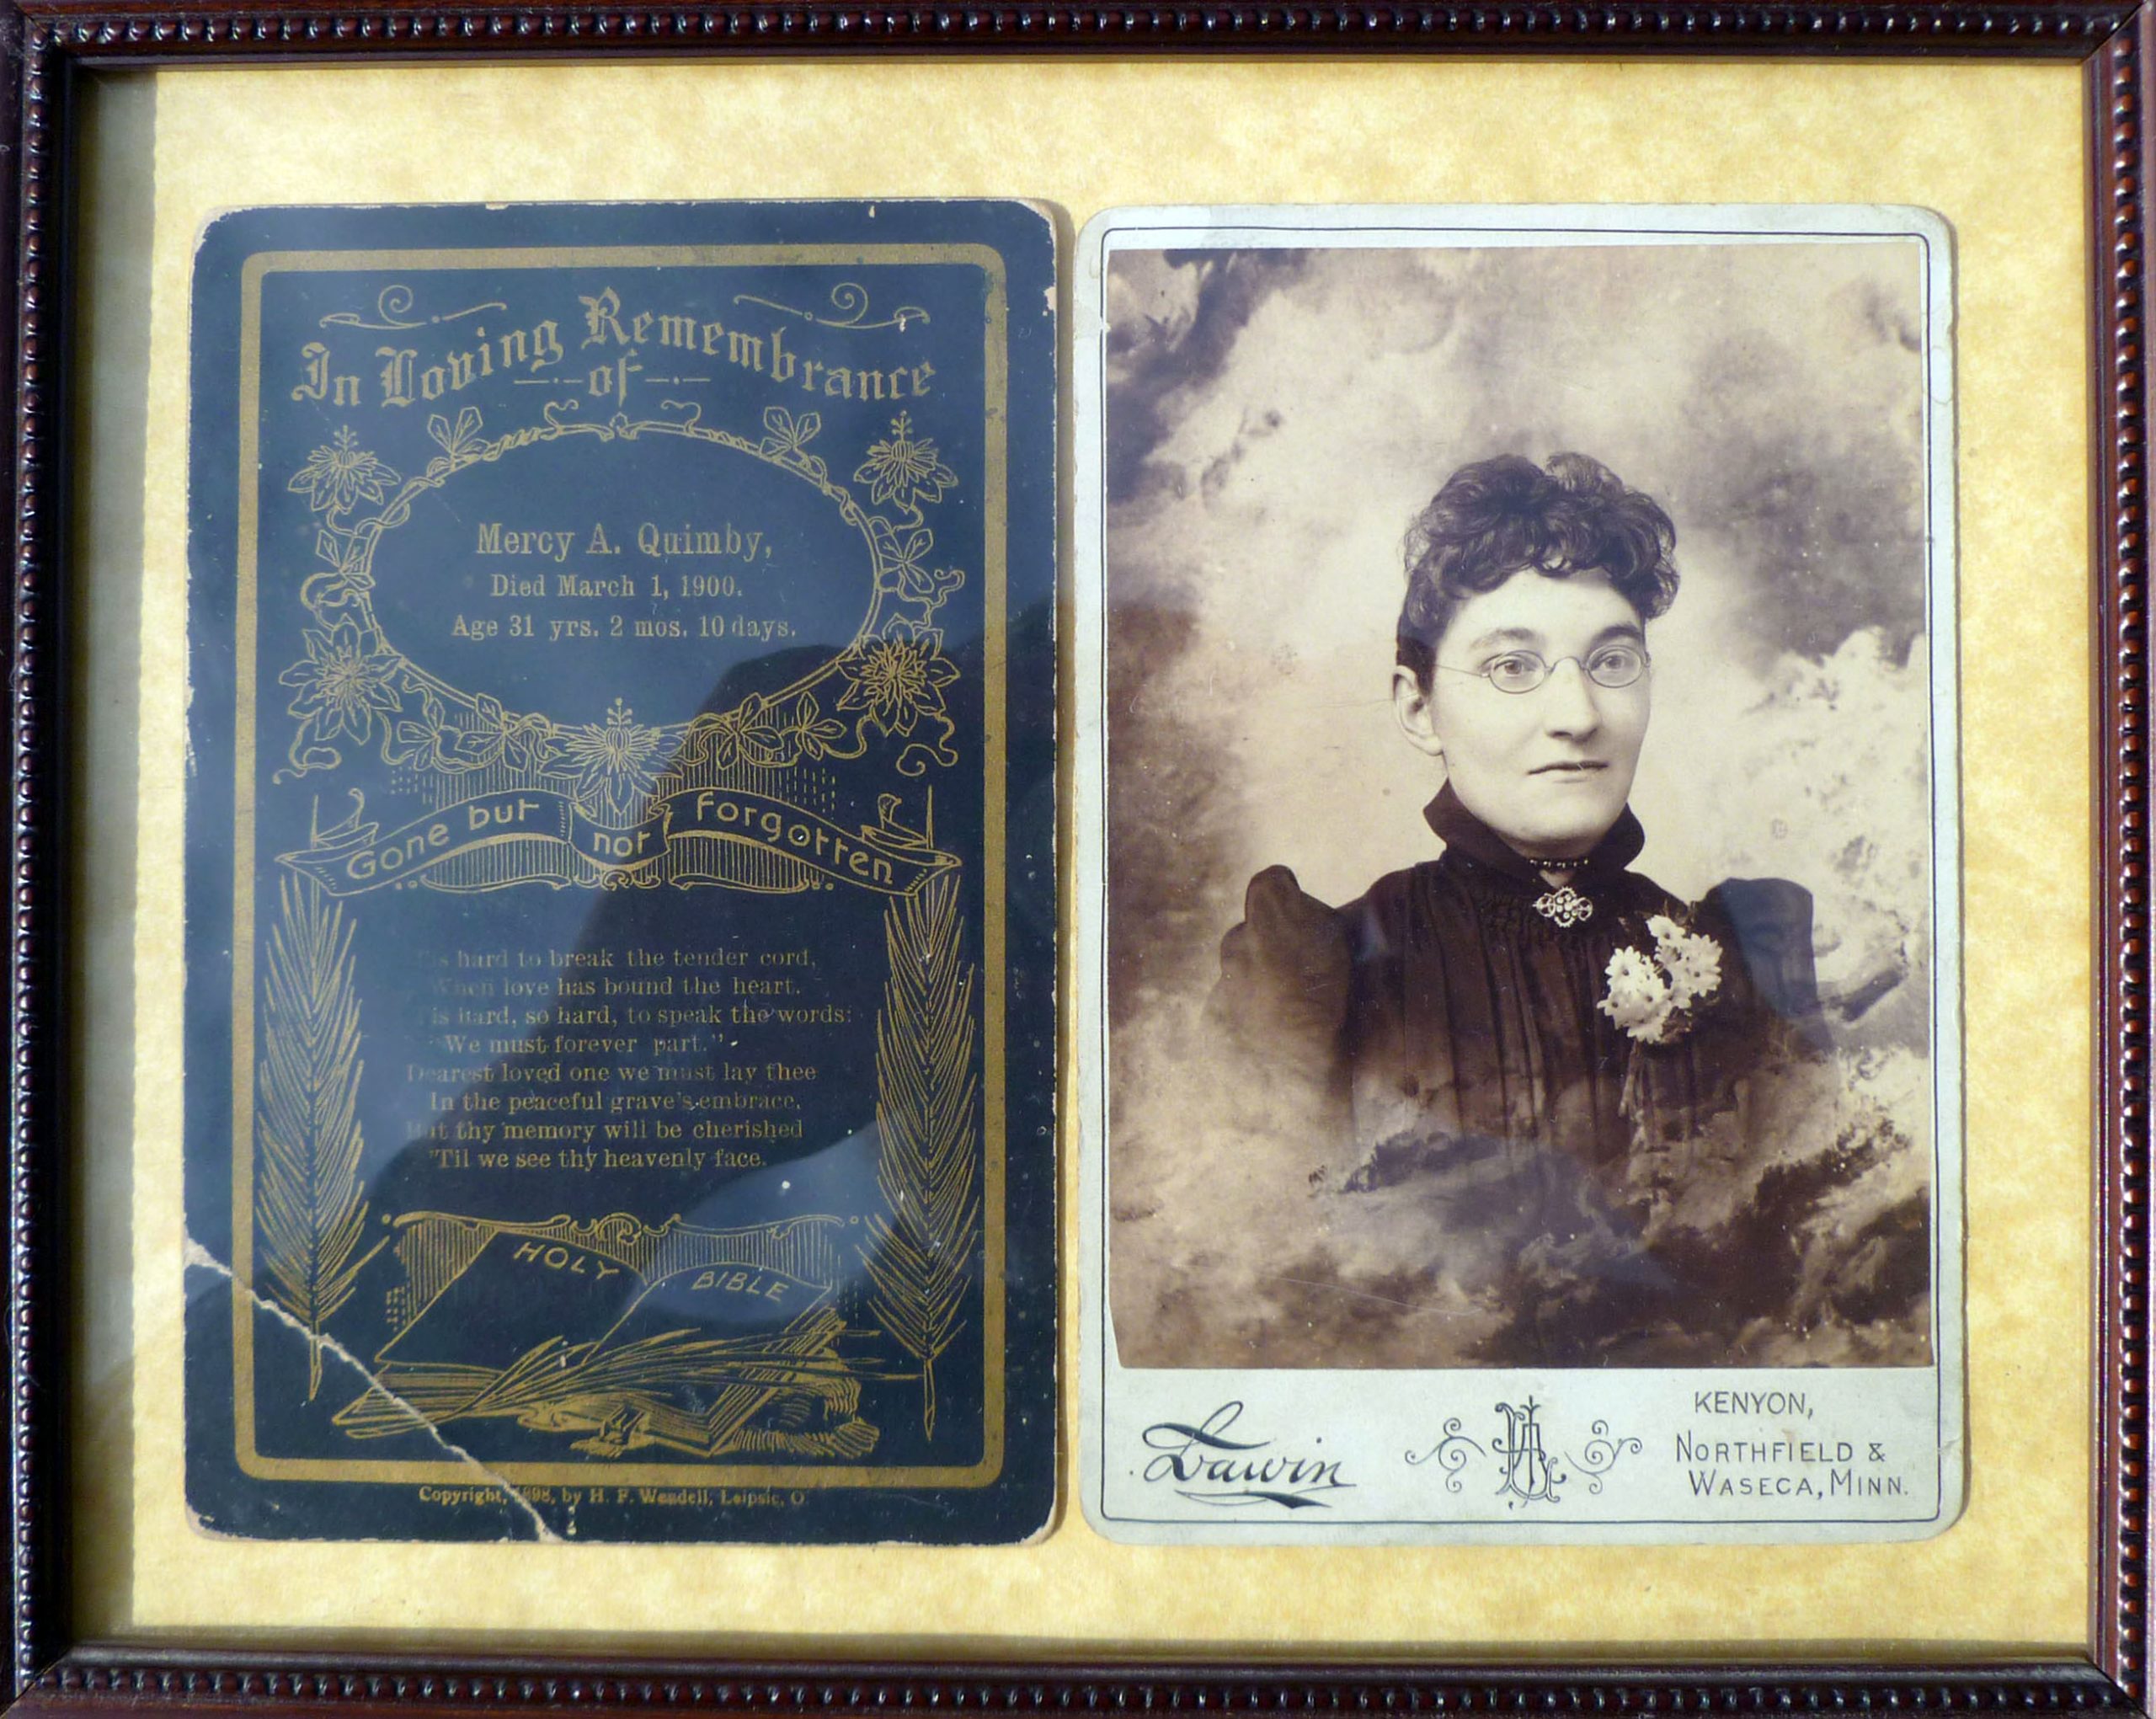 In Loving Remembrance
of
Mercy A. Quimby,
Died March 1, 1900.
Age 31 yrs. 2 mos. 10 days.
Gone but not forgotten
hard to break the tender cord,
When love has bound the heart.
'Tis hard, so hard, to speak the words:
"We must forever part."
Dearest loved one we must lay thee
In the peaceful grave's embrace,
But thy memory will be cherished
'Til we see thy heavenly face.
HOLY BIBLE
Copyright, 1898, by H. F. Wendell, Leipsic, O.
Lawin
KENYON,
NORTHFIELD &
WASECA, MINN.